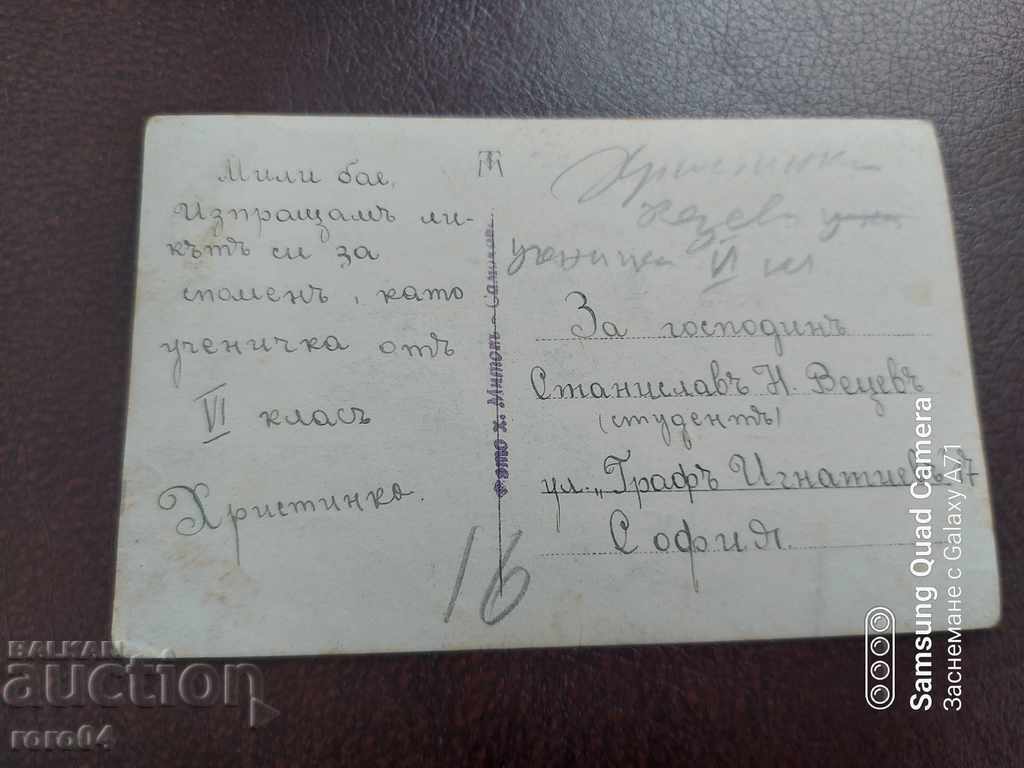 Мили бае,
Изпращамъ ли-
кътъ си за
споменъ, като
ученичка отъ
VI класъ
Христинка.
Фото х. Митовъ - Самоковъ
16
Христинка
ученичка VI кл
За господинъ
Станиславъ Н. Вецевъ
(студентъ)
ул. „Графъ Игнатиев" 7
София.
BALKAN
auction
roro04
Samsung Quad Camera
Заснемане с Galaxy A71